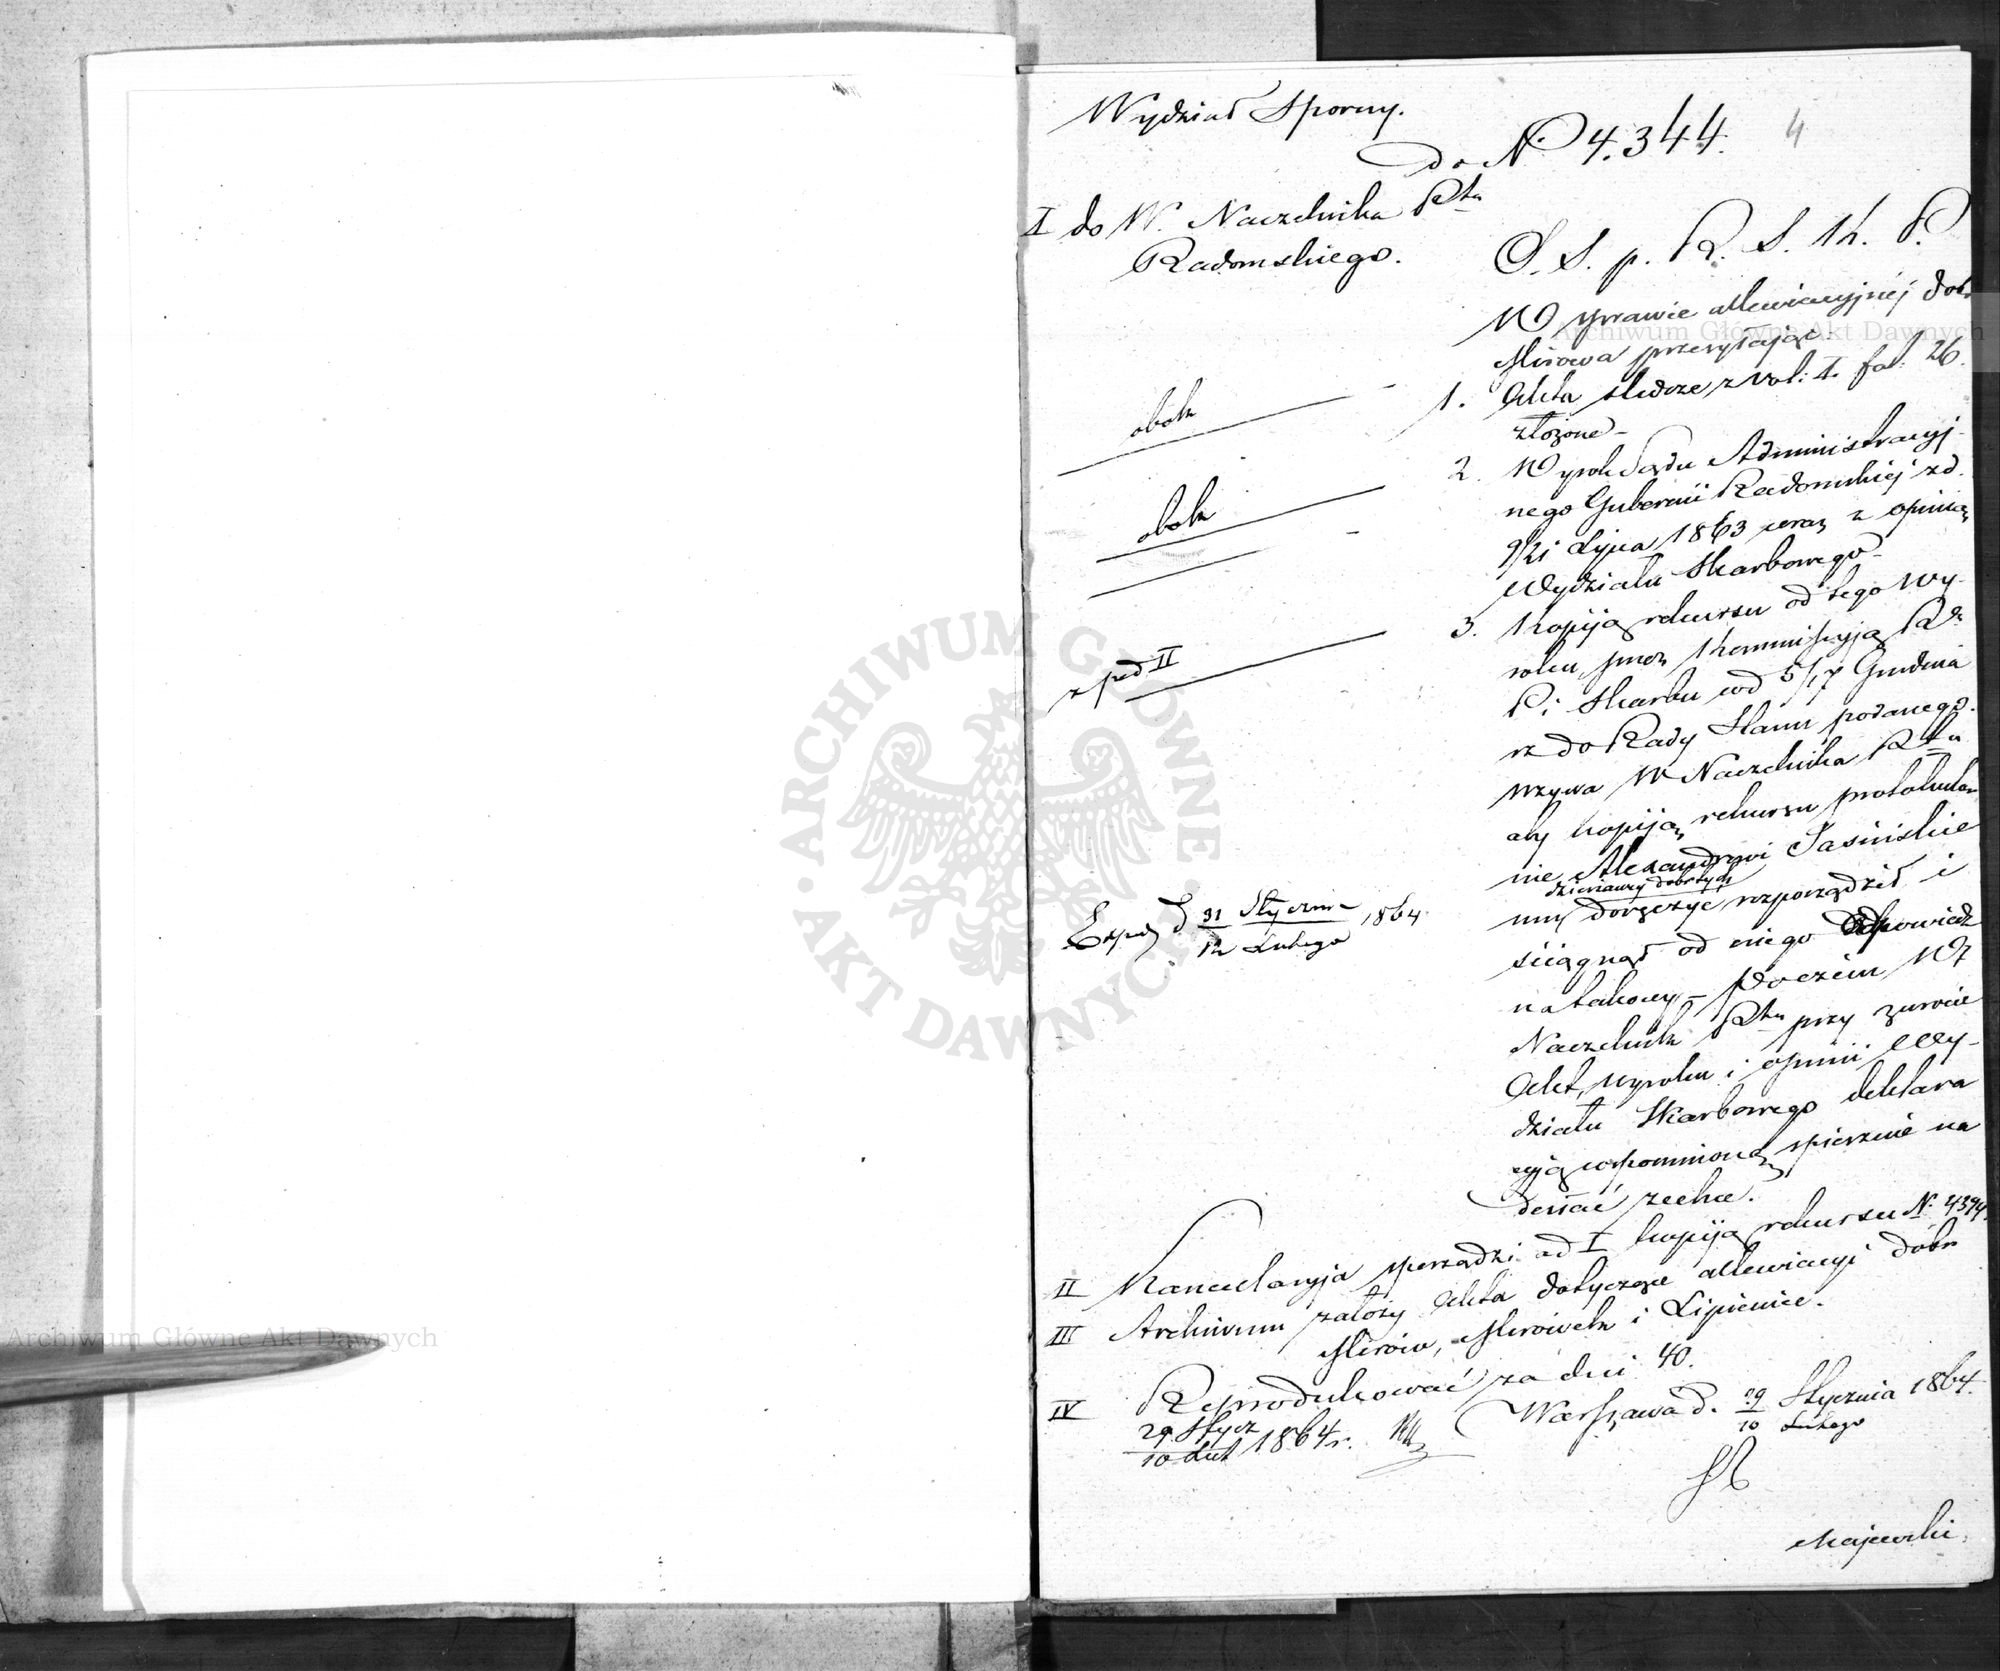 Wydział Sporny.
do N. 4.344.
4
I do W. Naczelnika Ptu
Radomskiego.
S. S. p. R. S. K. P.
W sprawie allewiacyjnéj dóbr
Mirowa przesyłając
obok
1. Akta śledcze z vol: I. fol: 26.
złożone –
obok
2. Wyrok Sądu Administracyj-
nego Gubernii Radomskiej z d.
9/21 Lipca 1863 wraz z opinią
Wydziału Skarbowego –
z pod II
3. Kopiją rekursu od tego wy-
roku, przez Kommissyją Rz.
P. i Skarbu pod 5/17 Grudnia
rz do Rady Stanu podanego.
wzywa W Naczelnika Ptu
aby kopiją rekursu protokular
nie Alexandrowi Jasińskie
dzierżawcy dóbr tych
mu doręczyć rozporządził i
ściągnął od niego odpowiedź
na takowy – poczém W
Naczelnik Ptu przy zwrocie
Akt, wyroku i opinii Wy-
działu Skarbowego deklara
cyją wspomnioną spiesznie na
desłać zechce.
Exped d 31 Stycznia / 12 Lutego 1864
II Kancelaryja sporządzi ad I kopiją rekursu N. 4394.
III Archiwum założy Akta dotyczące allewiacyi dóbr
Mirów, Mirówek i Lipienice.
IV Reprodukować za dni 40.
Warszawa d. 29/10 Stycznia/Lutego 1864.
29 Stycz / 10 Lut 1864 r.
Majewski
ARCHIWUM GŁÓWNE AKT DAWNYCH
Archiwum Główne Akt Dawnych
Archiwum Główne Akt Dawnych